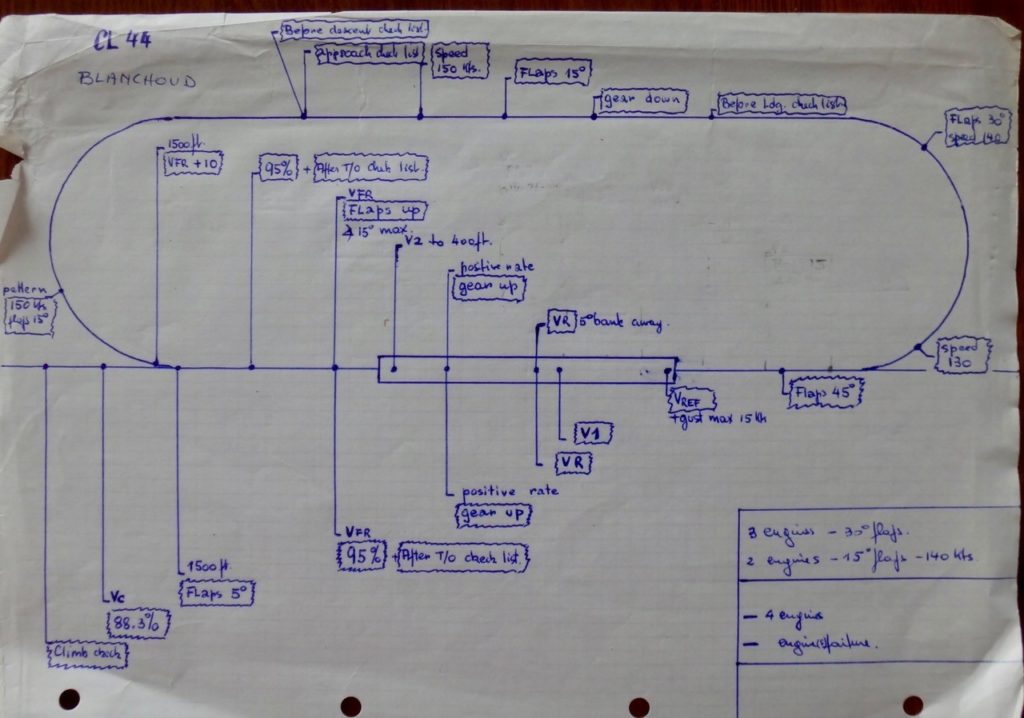 CL 44
BLANCHOUD
Before descent check list
Approach check list
Speed
150 Kts.
Flaps 15°
gear down
Before Ldg. check list
Flaps 30°
speed 140
1500 ft.
VFR +10
95% + After T/O check list
VFR
Flaps up
15° max.
V2 to 400 ft.
positive rate
gear up
pattern
150 kts
flaps 15°
VR 5° bank away.
Speed
130
VREF
+gust max 15 kts
Flaps 45°
V1
VR
positive rate
gear up
VFR
95% + After T/O check list.
1500 ft.
Flaps 5°
Vc
88.3%
Climb check
3 engines - 30° flaps.
2 engines - 15° flaps - 140 kts.
- 4 engines
- engine failure.